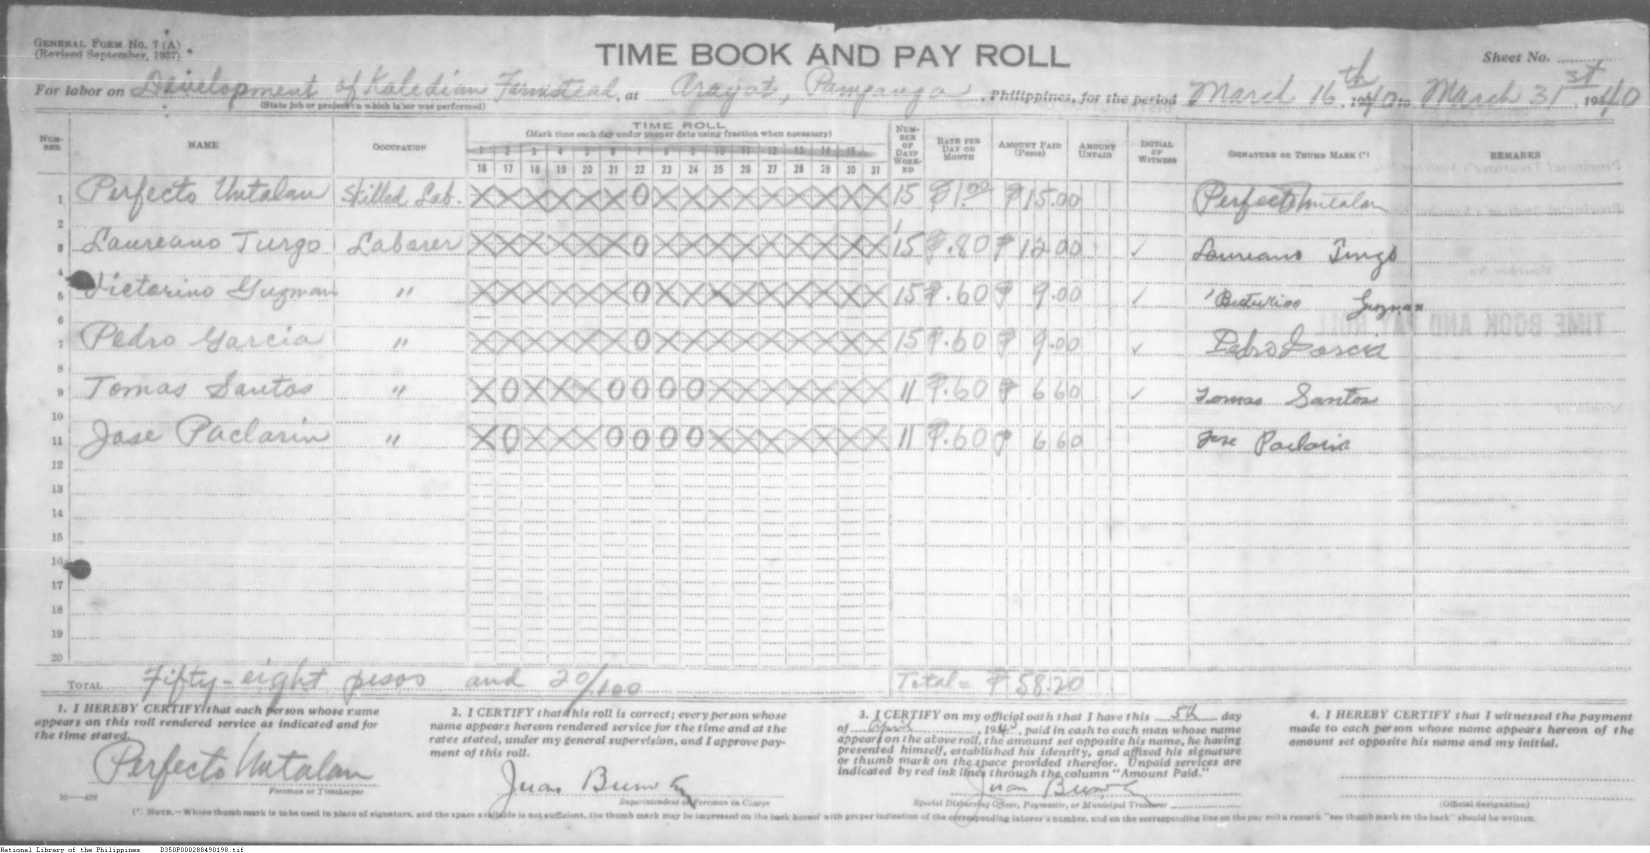 GENERAL FORM NO. 7 (A)
(Revised September, 1937)
TIME BOOK AND PAY ROLL
Sheet No.
For labor on Development of Kaledian Farmstead, at Arayat, Pampanga, Philippines, for the period March 16th, 1940 to March 31st, 1940
(State job or project in which labor was performed)
NUMBER NAME OCCUPATION TIME ROLL NUMBER OF DAYS WORKED RATE PER DAY OR MONTH AMOUNT PAID (Pesos) AMOUNT UNPAID INITIAL OF WITNESS SIGNATURE OR THUMB MARK (*) REMARKS
(Mark time each day under proper date using fraction when necessary)
1 2 3 4 5 6 7 8 9 10 11 12 13 14 15
16 17 18 19 20 21 22 23 24 25 26 27 28 29 30 31
1 Perfecto Untalan Skilled Lab. X X X X X X O X X X X X X X X X 15 ₱1.00 ₱15.00 Perfecto Untalan
2
3 Laureano Turgo Laborer X X X X X X O X X X X X X X X X 15 ₱.80 ₱12.00 ✓ Laureano Turgo
4
5 Victorino Guzman " X X X X X X O X X X X X X X X X 15 ₱.60 ₱9.00 ✓ Guzman
6
7 Pedro Garcia " X X X X X X O X X X X X X X X X 15 ₱.60 ₱9.00 ✓ Pedro Garcia
8
9 Tomas Santos " X O X X X O O O O X X X X X X X 11 ₱.60 ₱6.60 ✓ Tomas Santos
10
11 Jose Paclarin " X O X X X O O O O X X X X X X X 11 ₱.60 ₱6.60 Jose Paclarin
12
13
14
15
16
17
18
19
20
TOTAL Fifty-eight pesos and 20/100 Total = ₱58.20
1. I HEREBY CERTIFY that each person whose name
appears on this roll rendered service as indicated and for
the time stated.
Perfecto Untalan
Foreman or Timekeeper
2. I CERTIFY that this roll is correct; every person whose
name appears hereon rendered service for the time and at the
rates stated, under my general supervision, and I approve payment of this roll.
Juan
Superintendent or Foreman in Charge
3. I CERTIFY on my official oath that I have this 5th day
of April, 1940, paid in cash to each man whose name
appears on the above roll, the amount set opposite his name, he having
presented himself, established his identity, and affixed his signature
or thumb mark on the space provided therefor. Unpaid services are
indicated by red ink lines through the column "Amount Paid."
Juan
Special Disbursing Officer, Paymaster, or Municipal Treasurer
4. I HEREBY CERTIFY that I witnessed the payment
made to each person whose name appears hereon of the
amount set opposite his name and my initial.
(Official designation)
(*) NOTE.—Whose thumb mark is to be used in place of signature, and the space available is not sufficient, the thumb mark may be impressed on the back hereof with proper indication of the corresponding laborer's number, and on the corresponding line on the pay roll a remark "see thumb mark on the back" should be written.
National Library of the Philippines D350P000288490198.tif